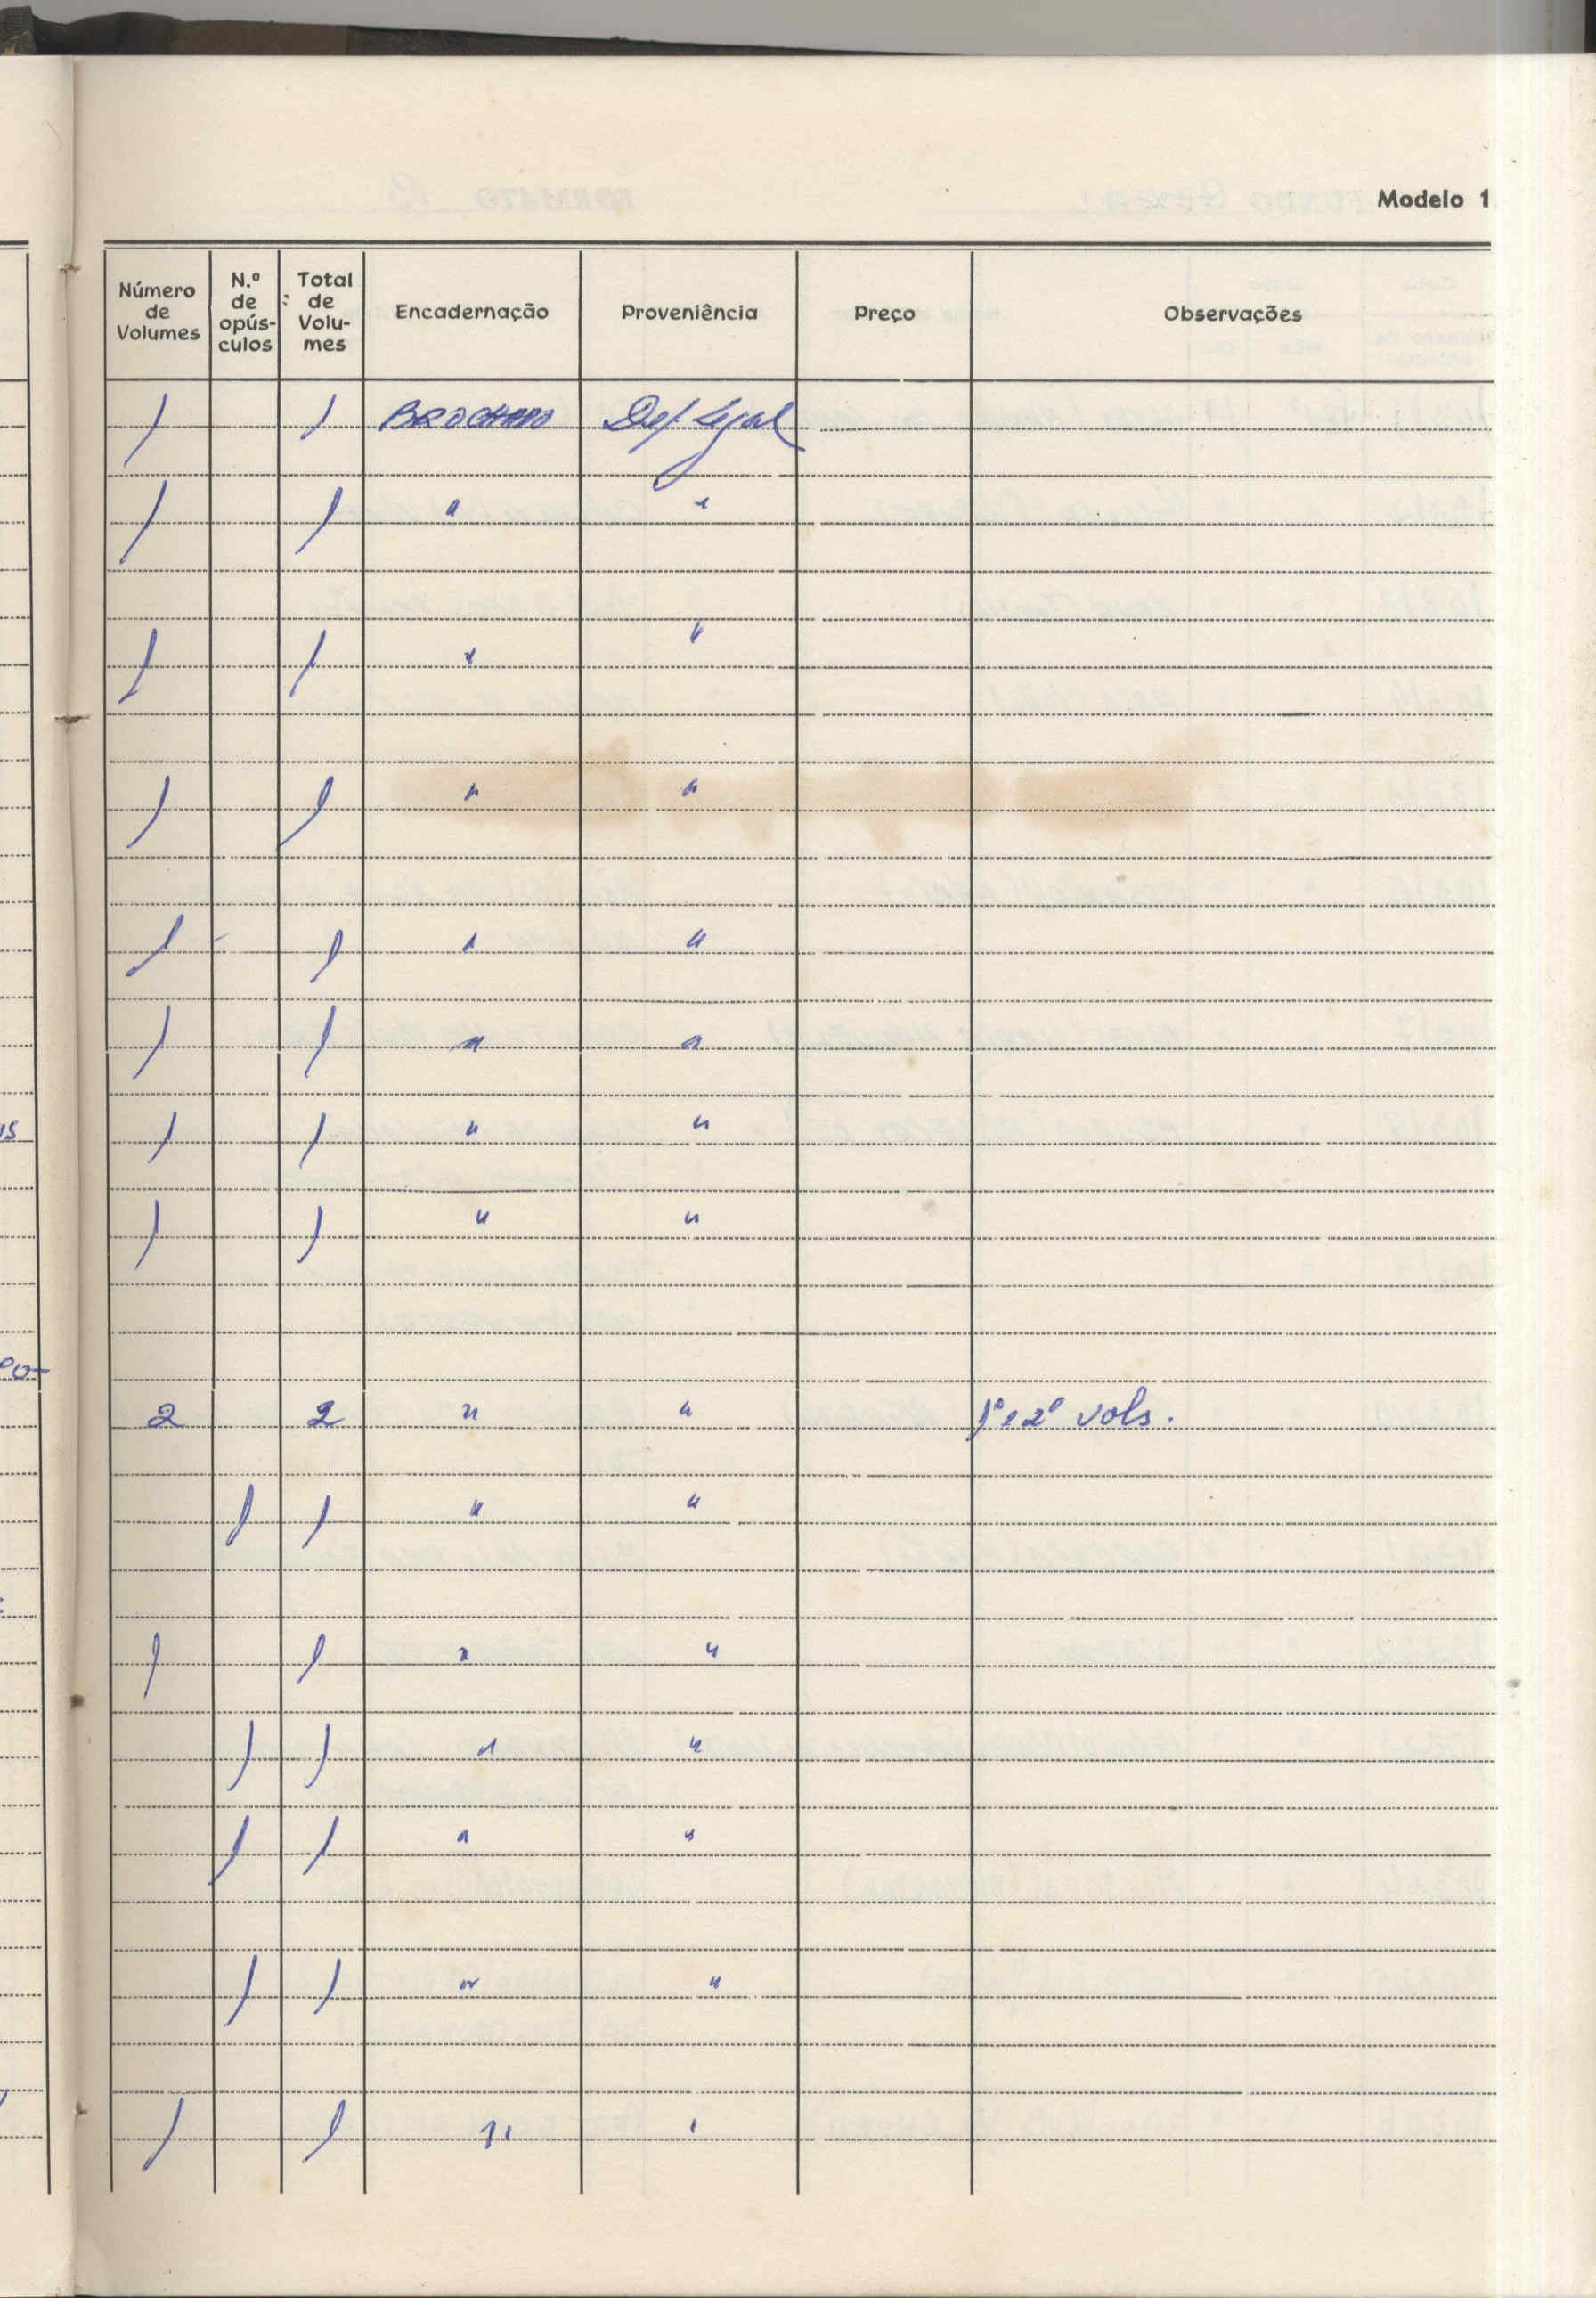 Modelo 1
Número de Volumes N.º de opús-culos Total de Volu-mes Encadernação Proveniência Preço Observações
1 1 BROCHADO Dep. Legal
1 1 " "
1 1 " "
1 1 " "
1 1 " "
1 1 " "
1 1 " "
1 1 " "
2 2 " " 1º e 2º vols.
1 1 " "
1 1 " "
1 1 " "
1 1 " "
1 1 " "
1 1 " "